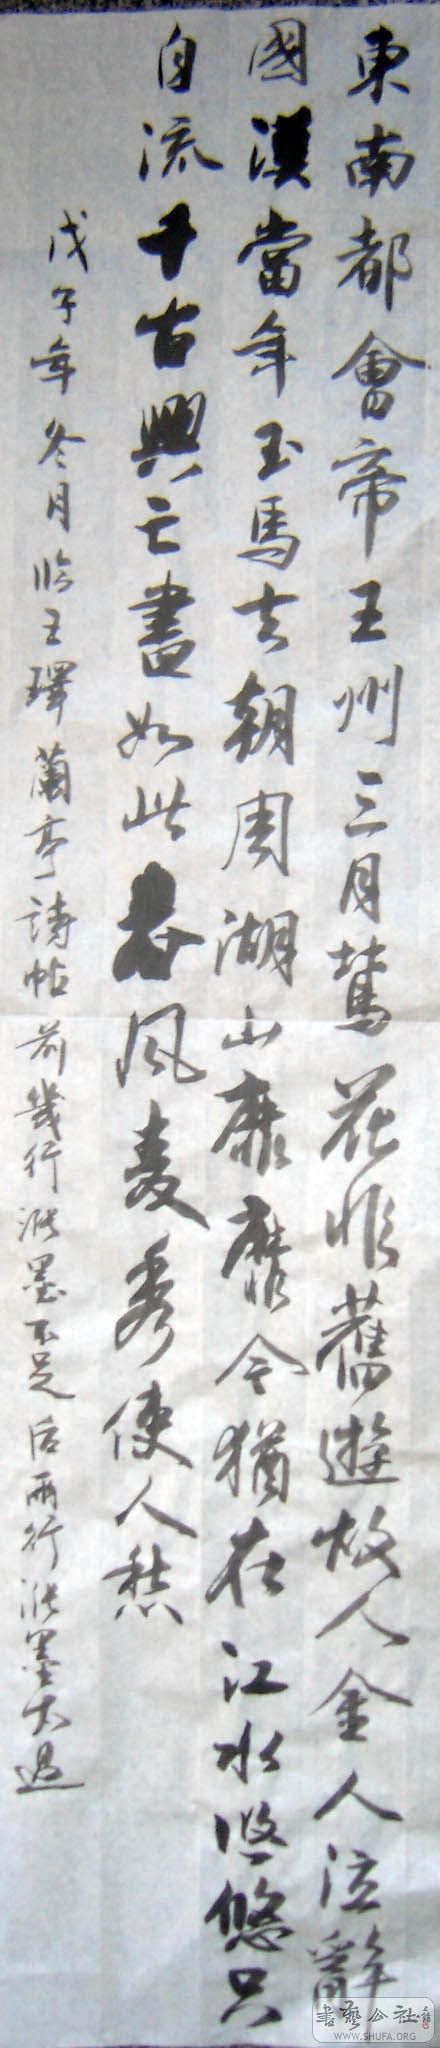 東南都會帝王州三月鶯花非舊遊故人金人泣辭
國漢當年玉馬去朝周湖山靡靡今猶在江水悠悠只
自流千古興亡盡如此春風麦秀使人愁
戊子年冬月臨王鐸蘭亭詩帖前幾行漲墨不足后兩行漲墨太過
書藝公社
WWW.SHUFA.ORG